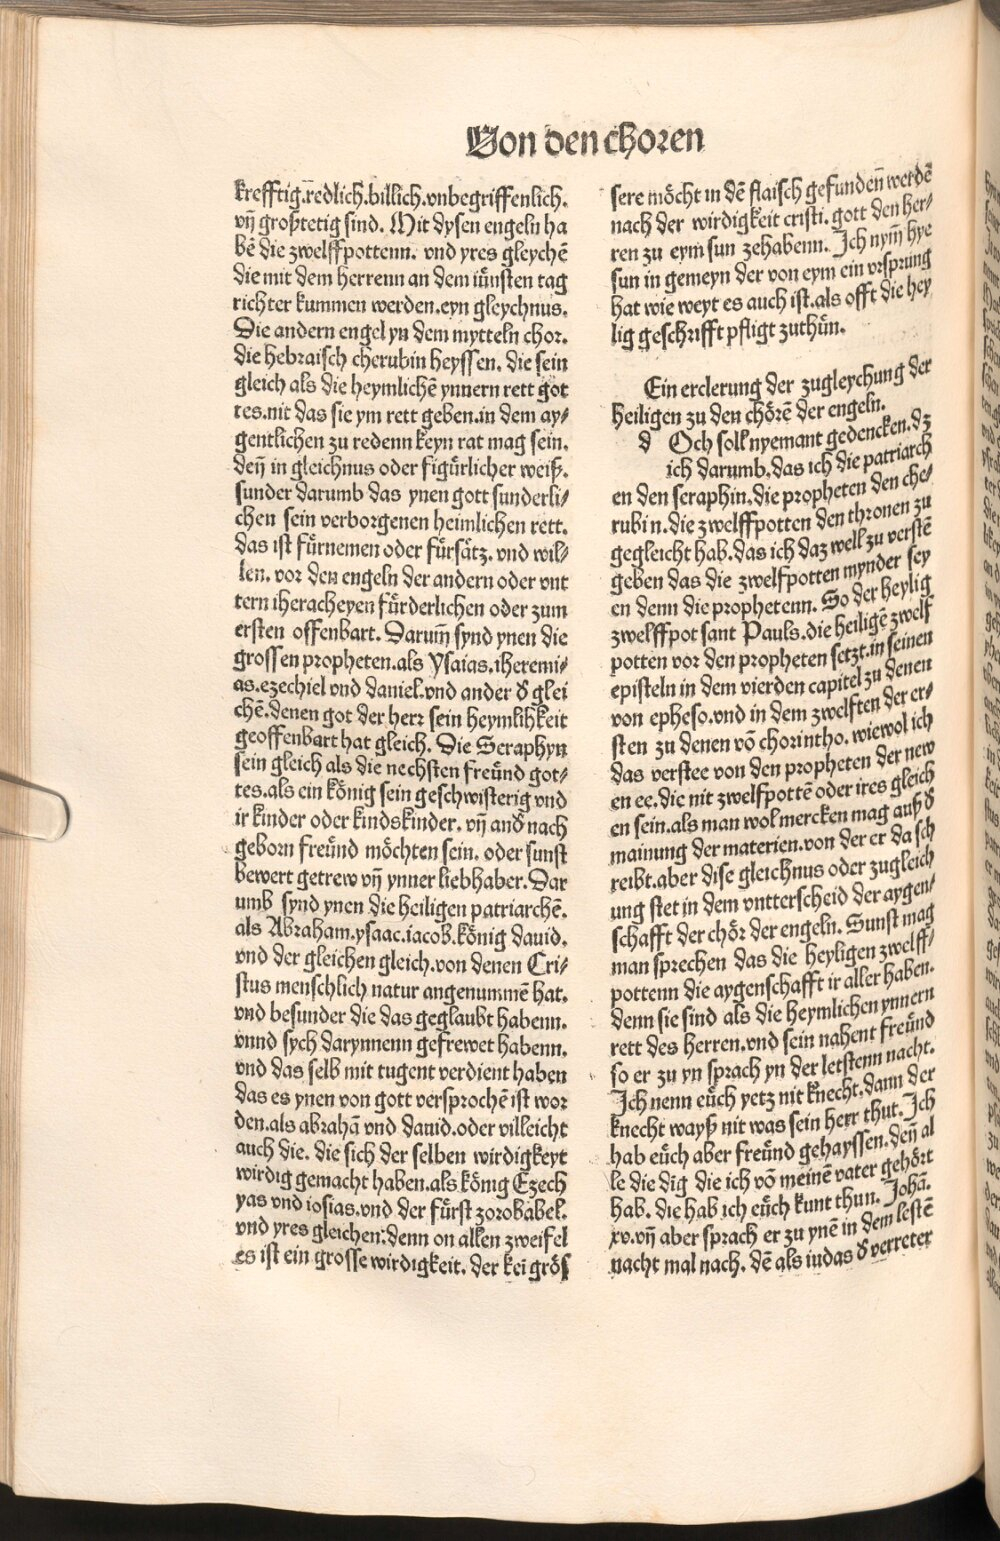 Von den choren
krefftig.redlich.billich.vnbegriffenlich.
vñ großtetig sind. Mit dysen engeln ha
bẽ die zwelffpottenn. vnd yres gleychẽ
die mit dem herrenn an dem iüngsten tag
richter kummen werden.eyn gleychnus.
Die andern engel yn dem mytteln chor.
die hebraisch cherubin heyssen. die sein
gleich als die heymlichẽ ynnern rett got
tes.nit das sie ym rett geben.in dem ay⸗
gentlichen zu redenn keyn rat mag sein.
deñ in gleichnus oder figürlicher weiß.
sunder darumb das ynen gott sunderli⸗
chen sein verborgenen heimlichen rett.
das ist fürnemen oder fürsätz. vnd wil⸗
len. vor den engeln der andern oder vnt
tern iheracheyen fürderlichen oder zum
ersten offenbart. Darum̃ synd ynen die
grossen propheten.als Ysaias.iheremi⸗
as.ezechiel vnd daniel.vnd ander ð glei
chẽ.denen got der herr sein heymlihkeit
geoffenbart hat gleich. Die Seraphyn
sein gleich als die nechsten freünd got⸗
tes.als ein könig sein geschwisterig vnd
ir kinder oder kindskinder. vñ anð nach
geborn freünd möchten sein. oder sunst
bewert getrew vñ ynner liebhaber.Dar
umb synd ynen die heiligen patriarchẽ.
als Abraham.ysaac.iacob.könig dauid.
vnd der gleichen gleich.von denen Cri⸗
stus menschlich natur angenummẽ hat.
vnd besunder die das geglaubt habenn.
vnnd sych darynnenn gefrewet habenn.
vnd das selb mit tugent verdient haben
das es ynen von gott versprochẽ ist wor
den.als abrahã vnd dauid.oder villeicht
auch die. die sich der selben wirdigkeyt
wirdig gemacht haben.als könig Ezech
yas vnd iosias.vnd der fürst zorobabel.
vnd yres gleichen:denn on allen zweifel
es ist ein grosse wirdigkeit. der kei grös
sere möcht in dẽ flaisch gefundeñ werdẽ
nach der wirdigkeit cristi. gott den her⸗
ren zu eym sun zehabenn. Ich nym̃ hye
sun in gemeyn der von eym ein vrsprung
hat wie weyt es auch ist.als offt die hey
lig geschrifft pfligt zuthün.
Ein erclerung der zugleychung der
heiligen zu den chörẽ der engeln.
d Och soll nyemant gedencken.dz
ich darumb.das ich die patriarch
en den seraphin.die propheten den che⸗
rubin.die zwelffpotten den thronen zu
gegleicht hab.das ich daz well zu verstẽ
geben das die zwelfpotten mynder sey
en denn die prophetenn. So der heylig
zwelffpot sant Pauls.die heiligẽ zwelf
potten vor den propheten setzt.in seinen
episteln in dem vierden capitel zu denen
von epheso.vnd in dem zwelften der er⸗
sten zu denen võ chorintho. wiewol ich
das verstee von den propheten der new
en ee.die nit zwelfpottẽ oder ires gleich
en sein.als man wol mercken mag auß ð
mainung der materien.von der er da sch
reibt.aber dise gleichnus oder zugleich
ung stet in dem vntterscheid der aygen⸗
schafft der chör der engeln. Sunst mag
man sprechen das die heyligen zwelff⸗
pottenn die aygenschafft ir aller haben.
denn sie sind als die heymlichen ynnern
rett des herren.vnd sein nahent freünd
so er zu yn sprach yn der letstenn nacht.
Ich nenn eüch yetz nit knecht.dann der
knecht wayß nit was sein herr thut. Ich
hab eüch aber freünd gehayssen.deñ al
le die dĩg die ich võ meinẽ vater gehört
hab. die hab ich eüch kunt thun. Johã.
xv.vñ aber sprach er zu ynẽ in dem lestẽ
nacht mal nach. dẽ als iudas ð verreter